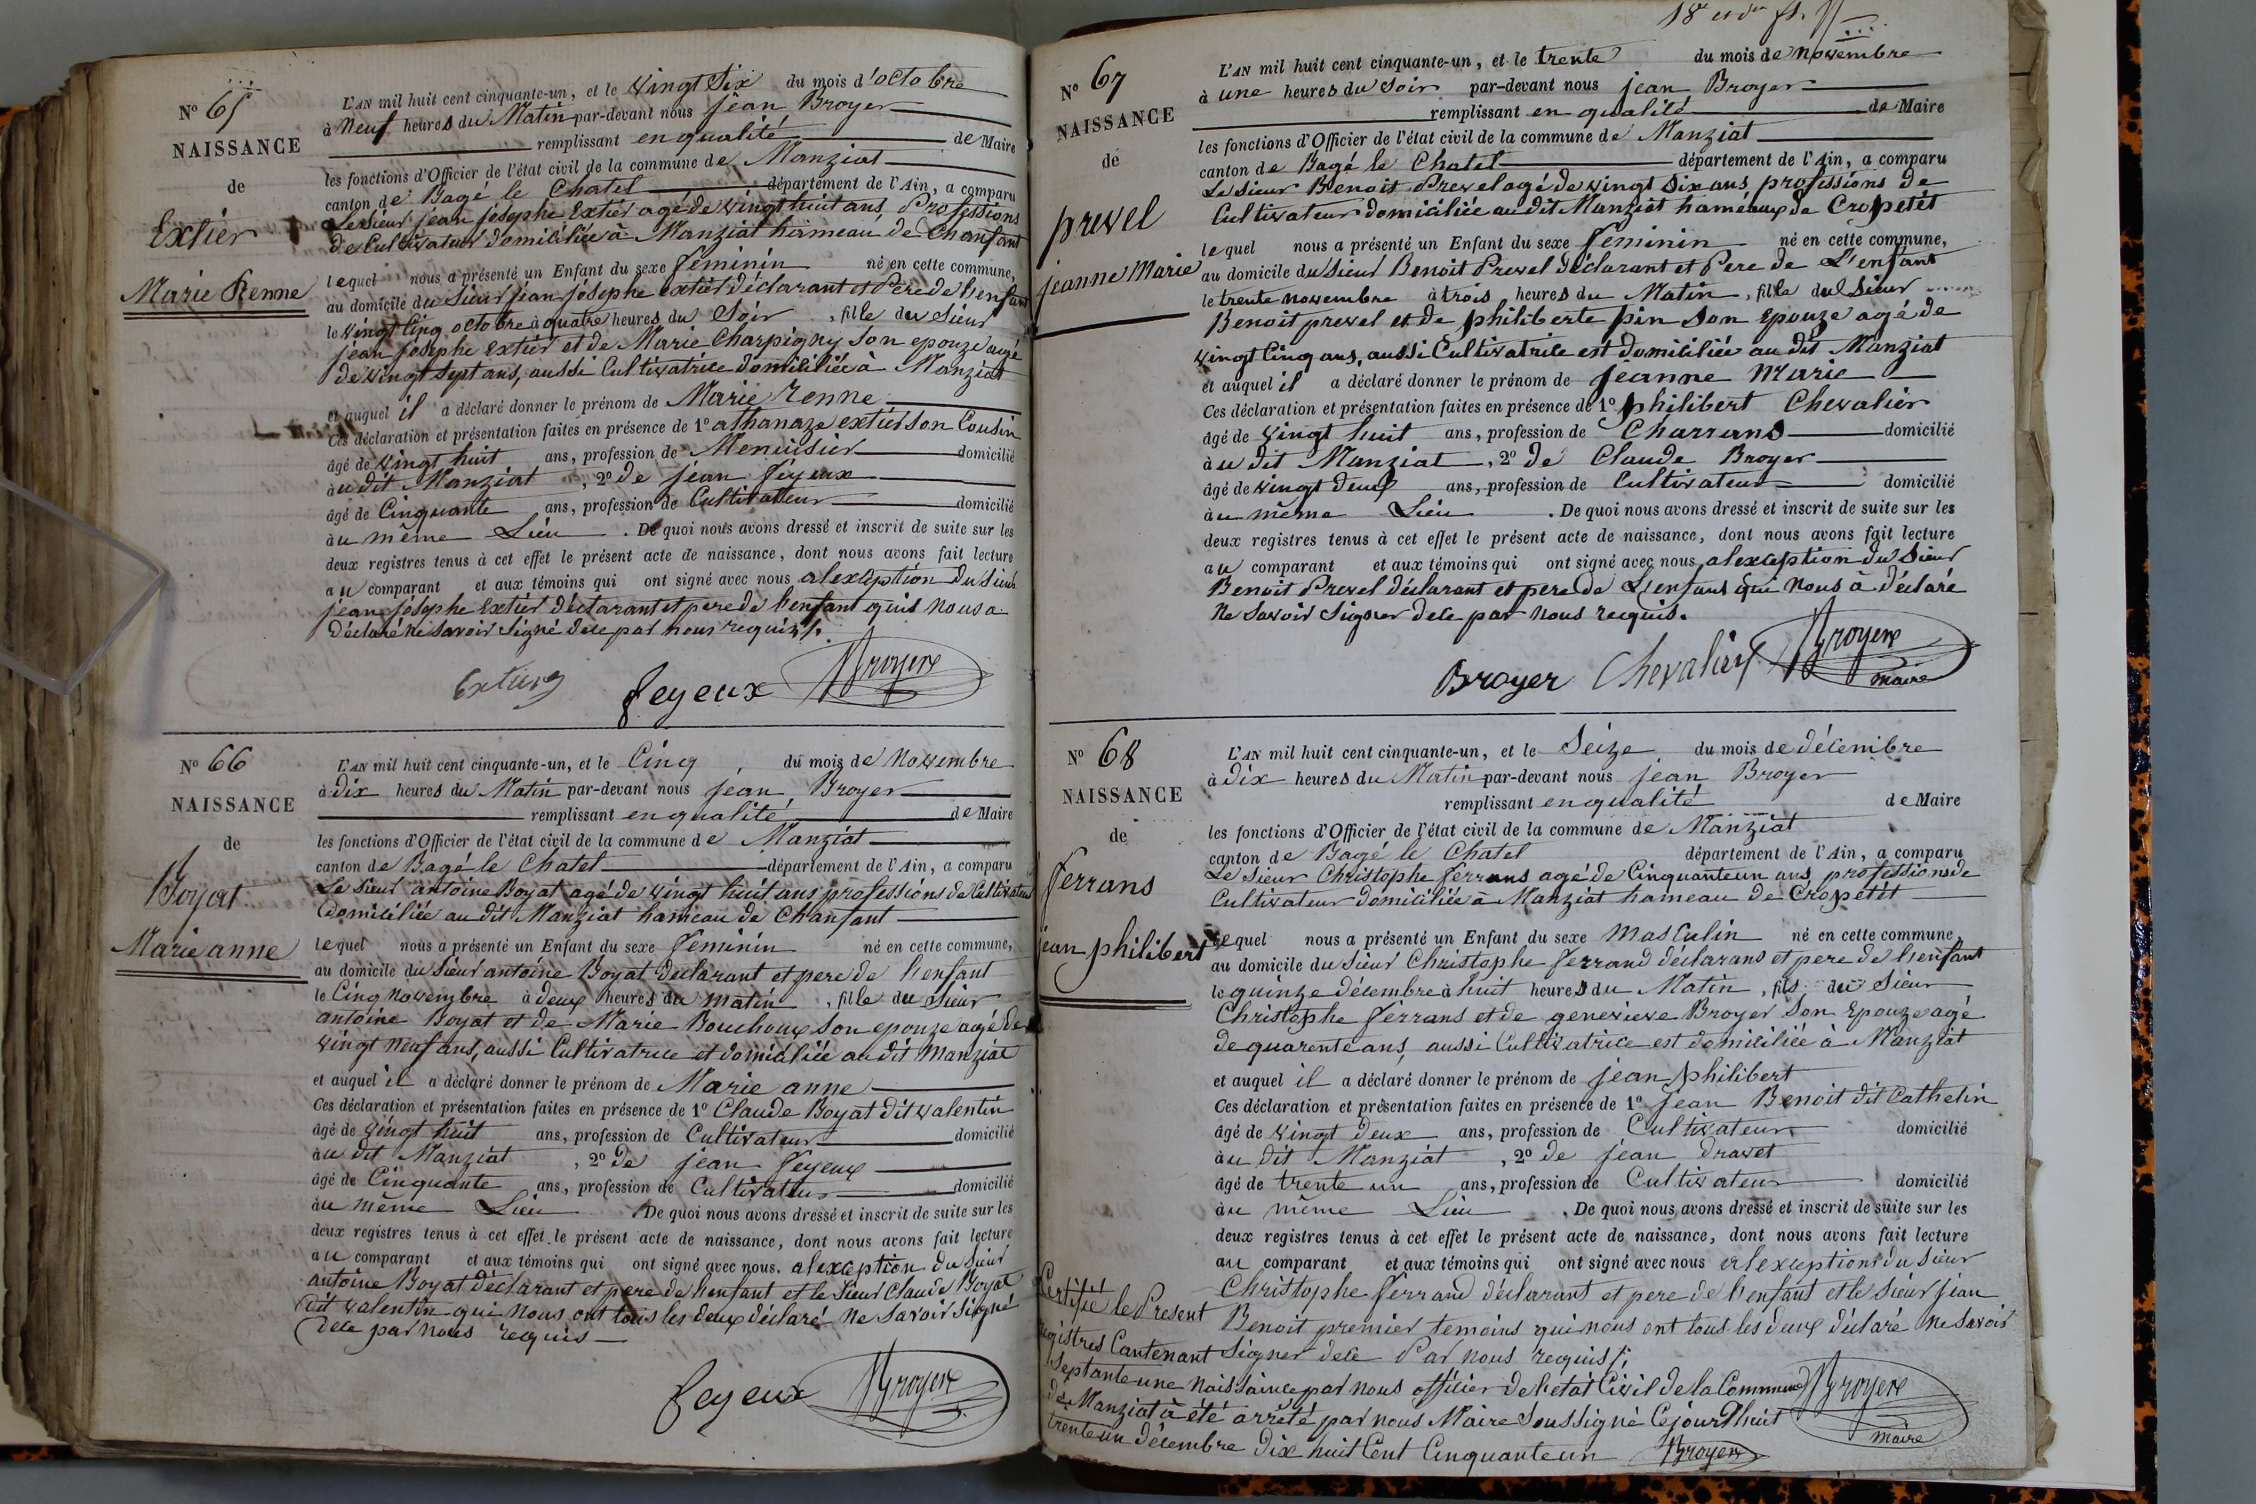 N° 65
NAISSANCE
de
Extier
Marie Renne
L'AN mil huit cent cinquante-un, et le vingt Six du mois d'octobre
à Neuf heures du Matin par-devant nous jean Broyer
remplissant en qualité de Maire
les fonctions d'Officier de l'état civil de la commune de Manziat
canton de Bagé le Chatel département de l'Ain, a comparu
Le Sieur jean jósephe Extier agé de vingt huit ans, Professions
de Cultivateur domiciliée à Manziat hameau de Chanfant
lequel nous a présenté un Enfant du sexe feminin né en cette commune,
au domicile du Sieur jean jósephe extier déclarant et Pere de l'enfant
le vingt Cinq octobre à quatre heures du Soir, fille du Sieur
jean jósephe Extier et de Marie Charpigny Son epouze agé
de vingt Sept ans, aussi Cultivatrice domiciliée à Manziat
et auquel il a déclaré donner le prénom de Marie Renne
Ces déclaration et présentation faites en présence de 1° athanaze extier son Cousin
âgé de vingt huit ans, profession de Menuisier domicilié
au dit Manziat, 2° de jean feyeux
âgé de Cinquante ans, profession de Cultivateur domicilié
au même Lieu. De quoi nous avons dressé et inscrit de suite sur les
deux registres tenus à cet effet le présent acte de naissance, dont nous avons fait lecture
au comparant et aux témoins qui ont signé avec nous alexception du Sieur
jean jósephe Extier déclarant et pere de l'enfant quis nous a
déclaré ne savoir Signé dece par nous requis
feyeux Broyer
N° 66
NAISSANCE
de
Boyat
Marie anne
L'AN mil huit cent cinquante-un, et le Cinq du mois de Novembre
à dix heures du Matin par-devant nous jean Broyer
remplissant en qualité de Maire
les fonctions d'Officier de l'état civil de la commune de Manziat
canton de Bagé le Chatel département de l'Ain, a comparu
Le Sieur antoine Boyat agé de vingt huit ans professions de Cultivateur
domiciliée au dit Manziat hameau de Chanfant
lequel nous a présenté un Enfant du sexe feminin né en cette commune,
au domicile du Sieur antoine Boyat declarant et pere de l'enfant
le Cinq Novembre à deux heures du matin, fille du Sieur
antoine Boyat et de Marie Bouchoux Son epouze agé de
vingt Neuf ans, aussi Cultivatrice et domiciliée au dit Manziat
et auquel il a déclaré donner le prénom de Marie anne
Ces déclaration et présentation faites en présence de 1° Claude Boyat dit valentin
âgé de vingt huit ans, profession de Cultivateur domicilié
au dit Manziat, 2° de jean feyeux
âgé de Cinquante ans, profession de Cultivateur domicilié
au même Lieu. De quoi nous avons dressé et inscrit de suite sur les
deux registres tenus à cet effet le présent acte de naissance, dont nous avons fait lecture
au comparant et aux témoins qui ont signé avec nous. alexception du Sieur
antoine Boyat déclarant et pere de l'enfant et le Sieur Claude Boyat
dit valentin qui nous ont tous les deux déclaré ne savoir Signé
dece par nous requis
feyeux Broyer
N° 67
NAISSANCE
de
prevel
jeanne Marie
L'AN mil huit cent cinquante-un, et le trente du mois de Novembre
à une heures du soir par-devant nous jean Broyer
remplissant en qualité de Maire
les fonctions d'Officier de l'état civil de la commune de Manziat
canton de Bagé le Chatel département de l'Ain, a comparu
Le sieur Benoit Prevel agé de vingt Six ans professions de
Cultivateur domiciliée au dit Manziat haméaux de Cropetét
lequel nous a présenté un Enfant du sexe feminin né en cette commune,
au domicile du Sieur Benoit Prevel déclarant et Pere de L'enfant
le trente Novembre à trois heures du Matin, fille du Sieur
Benoit prevel et de philiberte pin Son Epouze agé de
vingt Cinq ans, aussi Cultivatrice est domiciliée au dit Manziat
et auquel il a déclaré donner le prénom de jeanne Marie
Ces déclaration et présentation faites en présence de 1° philibert Chevalier
âgé de vingt huit ans, profession de Charrans domicilié
au dit Manziat, 2° de Claude Broyer
âgé de vingt deux ans, profession de Cultivateur domicilié
au même Lieu. De quoi nous avons dressé et inscrit de suite sur les
deux registres tenus à cet effet le présent acte de naissance, dont nous avons fait lecture
au comparant et aux témoins qui ont signé avec nous, alexception du Sieur
Benoit Prevel déclarant et pere de L'enfant qui nous à déclaré
ne savoir Signer dece par nous requis.
Broyer Chevalier Broyer
maire
N° 68
NAISSANCE
de
ferrans
jean philibert
L'AN mil huit cent cinquante-un, et le Seize du mois de décembre
à dix heures du Matin par-devant nous jean Broyer
remplissant en qualité de Maire
les fonctions d'Officier de l'état civil de la commune de Manziat
canton de Bagé le Chatel département de l'Ain, a comparu
Le Sieur Christophe ferrans agé de Cinquanteun ans, professions de
Cultivateur domiciliée à Manziat hameau de Cropetét
lequel nous a présenté un Enfant du sexe masculin né en cette commune,
au domicile du Sieur Christophe ferrand déclarans et pere de l'enfant
le quinze décembre à huit heures du Matin, fils du Sieur
Christophe ferrans et de genevieve Broyer Son Epouze agé
de quarente ans, aussi Cultivatrice est domiciliée à Manziat
et auquel il a déclaré donner le prénom de jean philibert
Ces déclaration et présentation faites en présence de 1° jean Benoit dit Cathelin
âgé de vingt deux ans, profession de Cultivateur domicilié
au dit Manziat, 2° de jean dravet
âgé de trente un ans, profession de Cultivateur domicilié
au même Lieu. De quoi nous avons dressé et inscrit de suite sur les
deux registres tenus à cet effet le présent acte de naissance, dont nous avons fait lecture
au comparant et aux témoins qui ont signé avec nous alexception du Sieur
Christophe ferrand déclarant et pere de l'enfant et le Sieur jean
Benoit premier temoins qui nous ont tous les deux déclaré ne savoir
Signer dece Par nous requis
Certifié le Present
registres Contenant
Septante une Naissance par nous officier de l'etat Civil de la Commune
de Manziat à été arrêté par nous Maire Soussigné Cejourd'huit
trente un décembre dix huit Cent Cinquanteun
Broyer
maire
Broyer